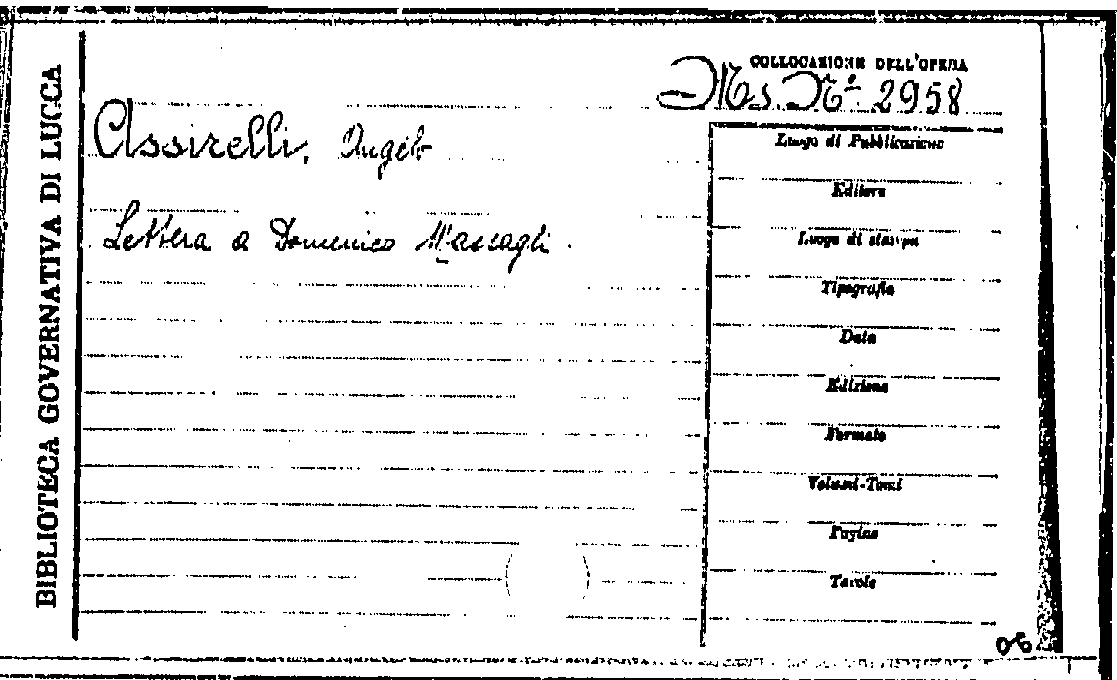 BIBLIOTECA GOVERNATIVA DI LUCCA
COLLOCAZIONE DELL'OPERA
Ms. N.º 2958
Assirelli, Angelo
Lettera a Domenico Massagli.
Luogo di Pubblicazione
Editore
Luogo di stampa
Tipografia
Data
Edizione
Formato
Volumi-Tomi
Pagine
Tavole